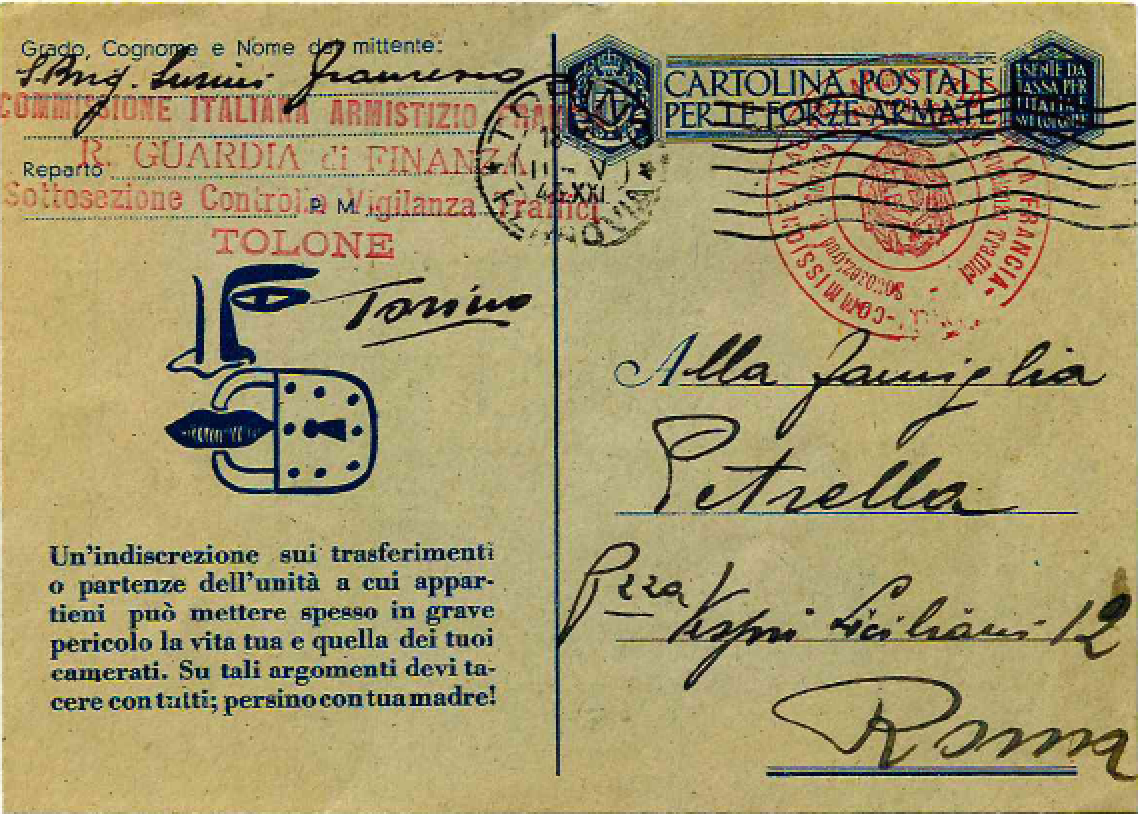 Grado, Cognome e Nome del mittente:
S. Brig. Francesco
COMMISSIONE ITALIANA ARMISTIZIO FRA
R. GUARDIA di FINANZA
Reparto
Sottosezione Controllo Vigilanza Traffici
P. M.
TOLONE
Torino
Un'indiscrezione sui trasferimenti
o partenze dell'unità a cui appar-
tieni può mettere spesso in grave
pericolo la vita tua e quella dei tuoi
camerati. Su tali argomenti devi ta-
cere con tutti; persino con tua madre!
CARTOLINA POSTALE
PER LE FORZE ARMATE
ESENTE DA
TASSA PER
TORINO
18
11-V
43.XXI
FERROVIA
FRANCIA
COMMISSIONE
Sottosezione
Traffici
Alla famiglia
Petrella
Pzza Vespri Siciliani 12
Roma